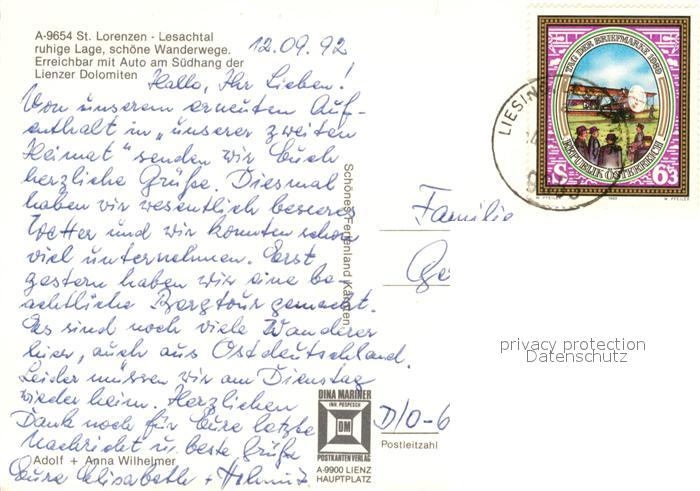 A-9654 St. Lorenzen - Lesachtal
ruhige Lage, schöne Wanderwege.
Erreichbar mit Auto am Südhang der
Lienzer Dolomiten
12.09.92
Hallo, Ihr Lieben!
Von unserem erneuten Auf-
enthalt in „unserer zweiten
Heimat" senden wir Euch
herzliche Grüße. Diesmal
haben wir wesentlich besseres
Wetter und wir konnten schon
viel unternehmen. Erst
gestern haben wir eine be-
achtliche Bergtour gemacht.
Es sind noch viele Wanderer
hier, auch aus Ostdeutschland.
Leider müssen wir am Dienstag
wieder heim. Herzlichen
Dank noch für Eure letzte
Nachricht u. beste Grüße
Eure Elisabeth + Helmut
Adolf + Anna Wilhelmer
Schönes Ferienland Kärnten,
DINA MARINER
INH. PESPESCH
DM
POSTKARTENVERLAG
A-9900 LIENZ
HAUPTPLATZ
Familie
Ge
D/O-6
Postleitzahl
privacy protection
Datenschutz
TAG DER BRIEFMARKE 1989
REPUBLIK ÖSTERREICH
S 6+3
W. PFEILER
1989
LIESIN